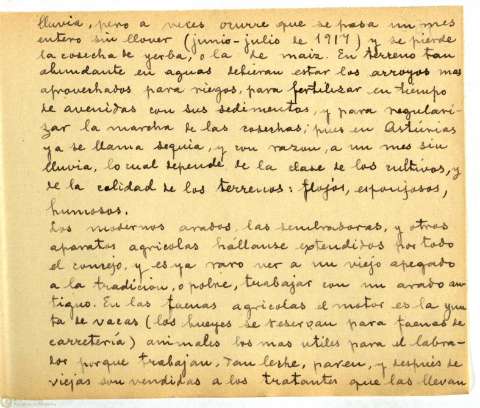 lluvia, pero a veces ocurre que se pasa un mes
entero sin llover (junio-julio de 1917) y se pierde
la cosecha de yerba, o la de maiz. En terreno tan
abundante en aguas debieran estar los arroyos mas
aprovechados para riegos, para fertilizar en tiempo
de avenidas con sus sedimentos, y para regulari-
zar la marcha de las cosechas; pues en Asturias
ya se llama sequia, y con razon, a un mes sin
lluvia, lo cual depende de la clase de los cultivos, y
de la calidad de los terrenos: flojos, esponjosos,
humosos.
Los modernos arados, las sembradoras, y otros
aparatos agricolas hallanse extendidos por todo
el concejo, y es ya raro ver a un viejo apegado
a la tradicion, o pobre, trabajar con un arado an-
tiguo. En las faenas agricolas el motor es la yun-
ta de vacas (los bueyes se reservan para faenas de
carretería) animales los mas utiles para el labra-
dor porque trabajan, dan leche, paren, y después de
viejas son vendidas a los tratantes que las llevan